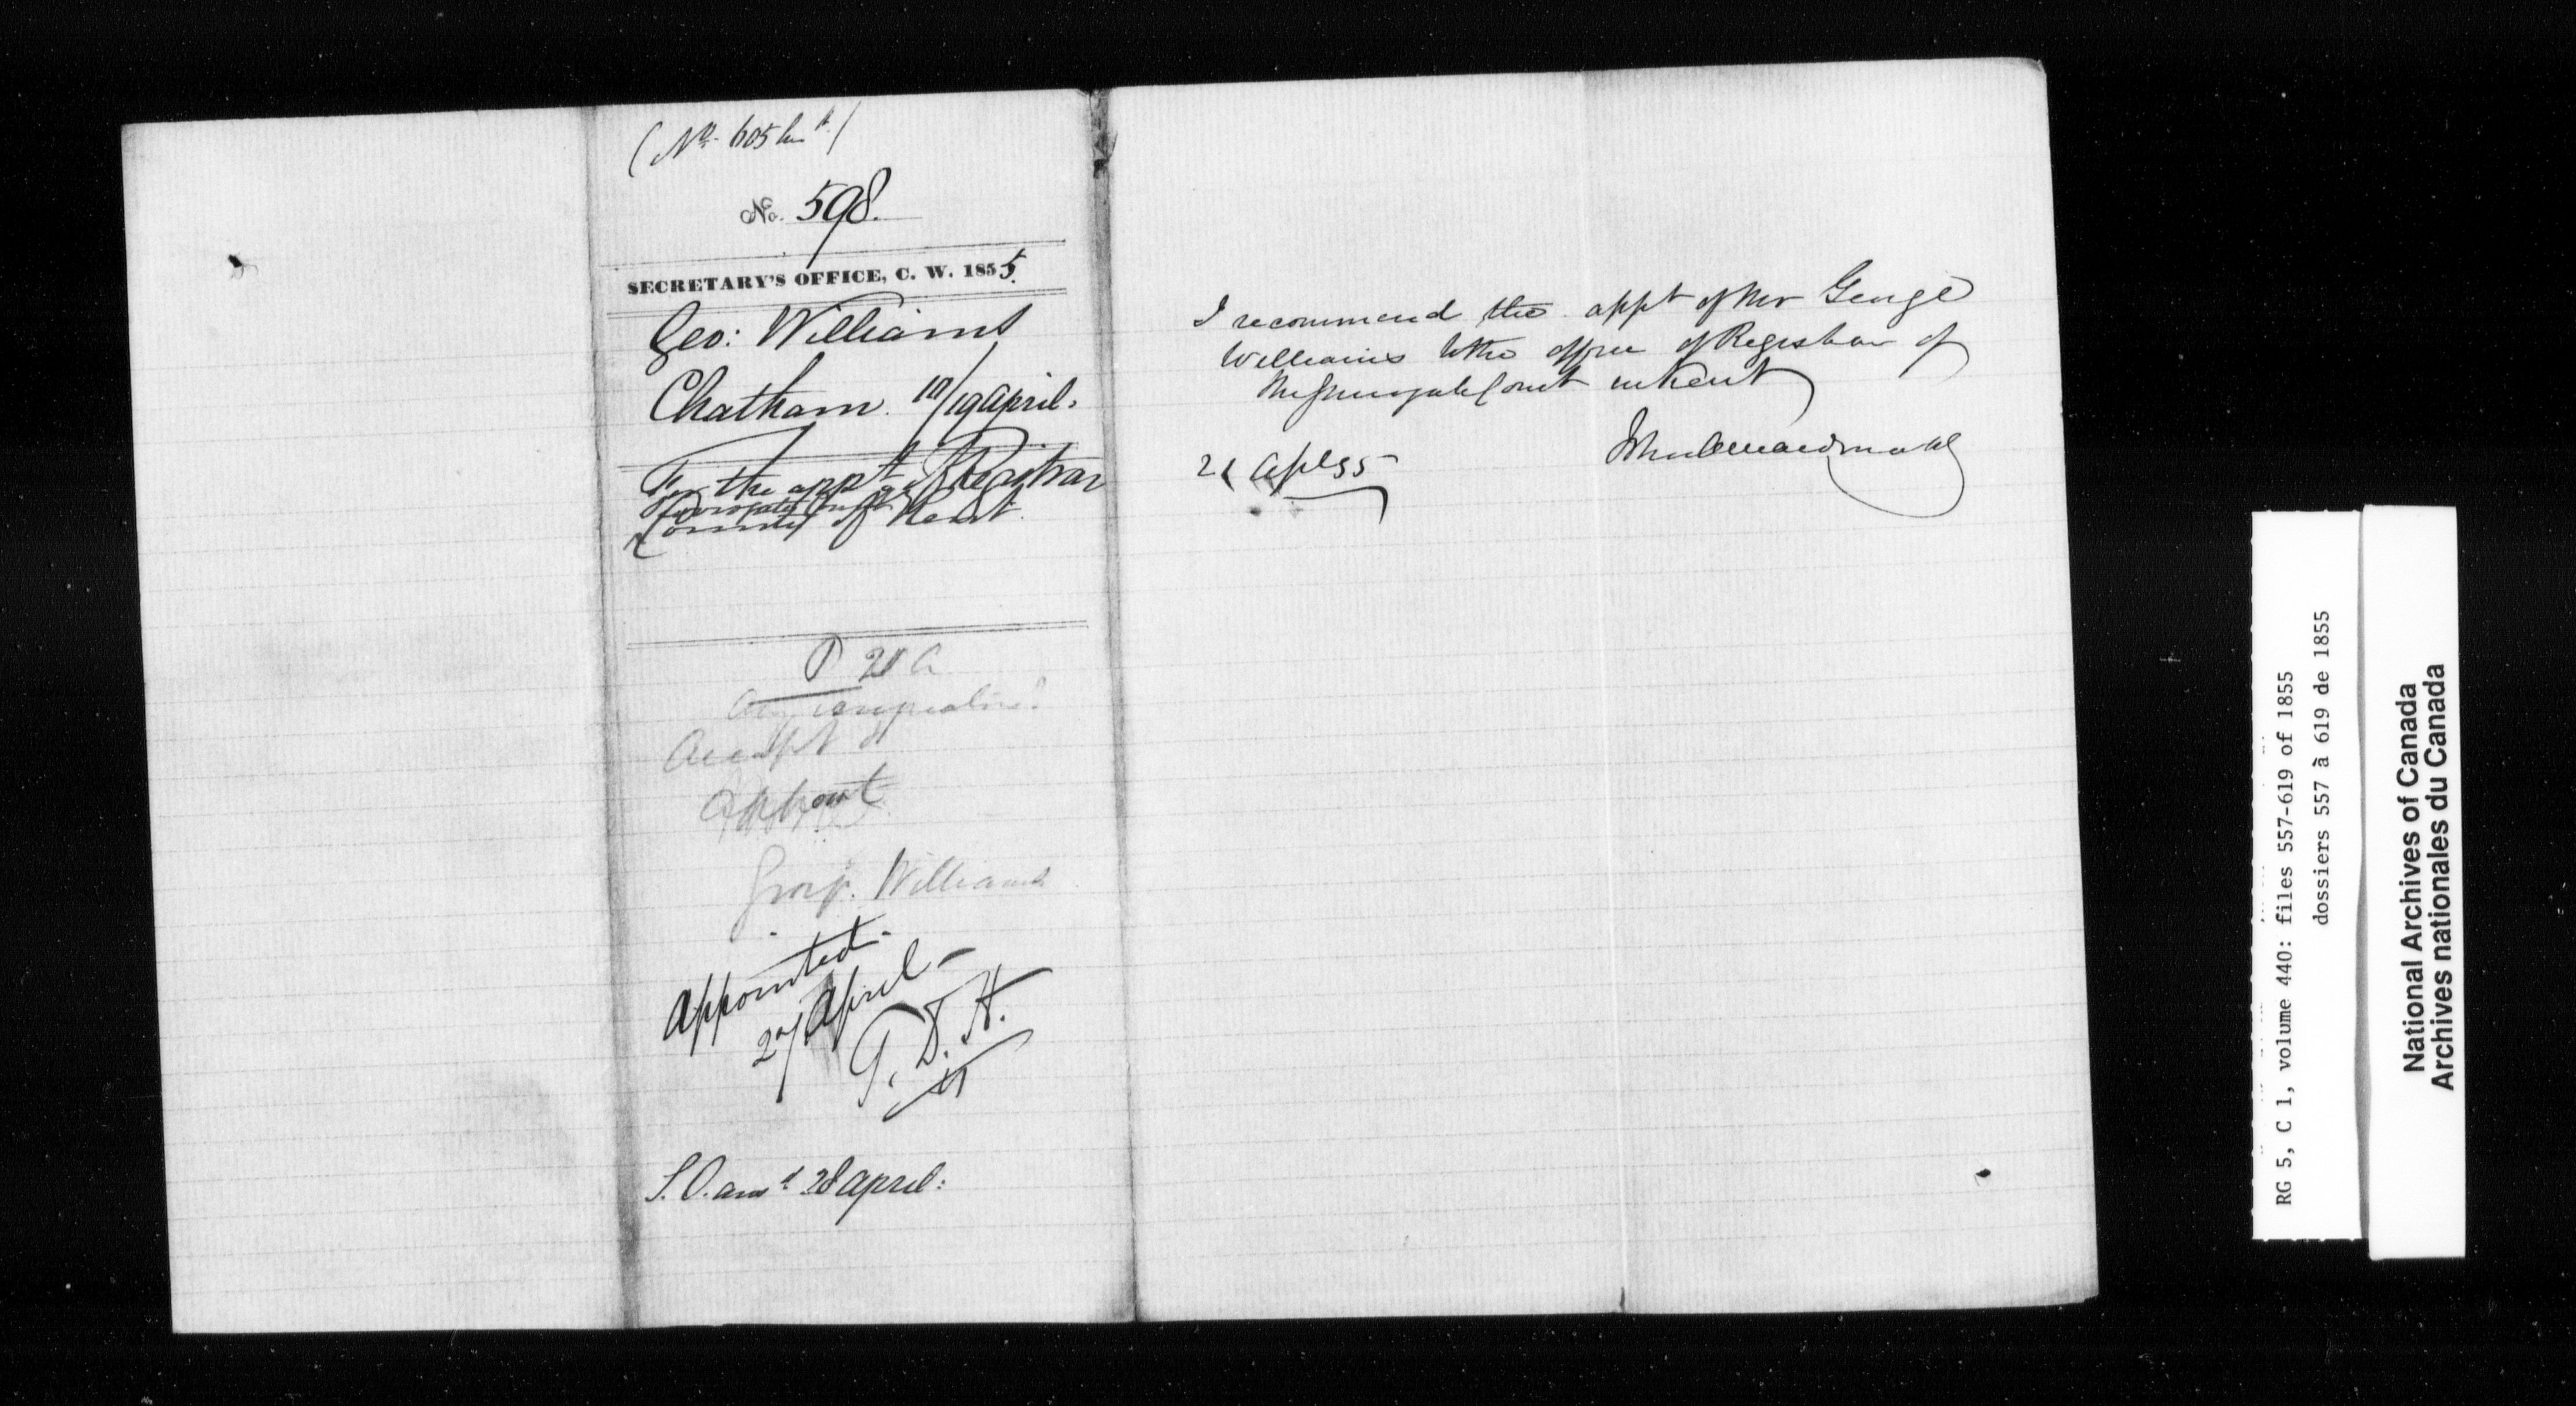 (No. 605
No. 598.
SECRETARY'S OFFICE, C. W. 1855.
Geo: Williams
Chatham. 18/19 april.
For the appt of Registrar
Surrogate Court
County of Kent.
P 21 A
any
Accept
Appoint
George Williams
Appointed.
27 April –
T. D. H.
S. O. ansd 28 april:
I recommend the appt of Mr George
Williams to the office of Registrar of
the Surrogate Court in Kent
21 Apl 55
John A Macdonald
RG 5, C 1, volume 440: files 557-619 of 1855
dossiers 557 à 619 de 1855
National Archives of Canada
Archives nationales du Canada